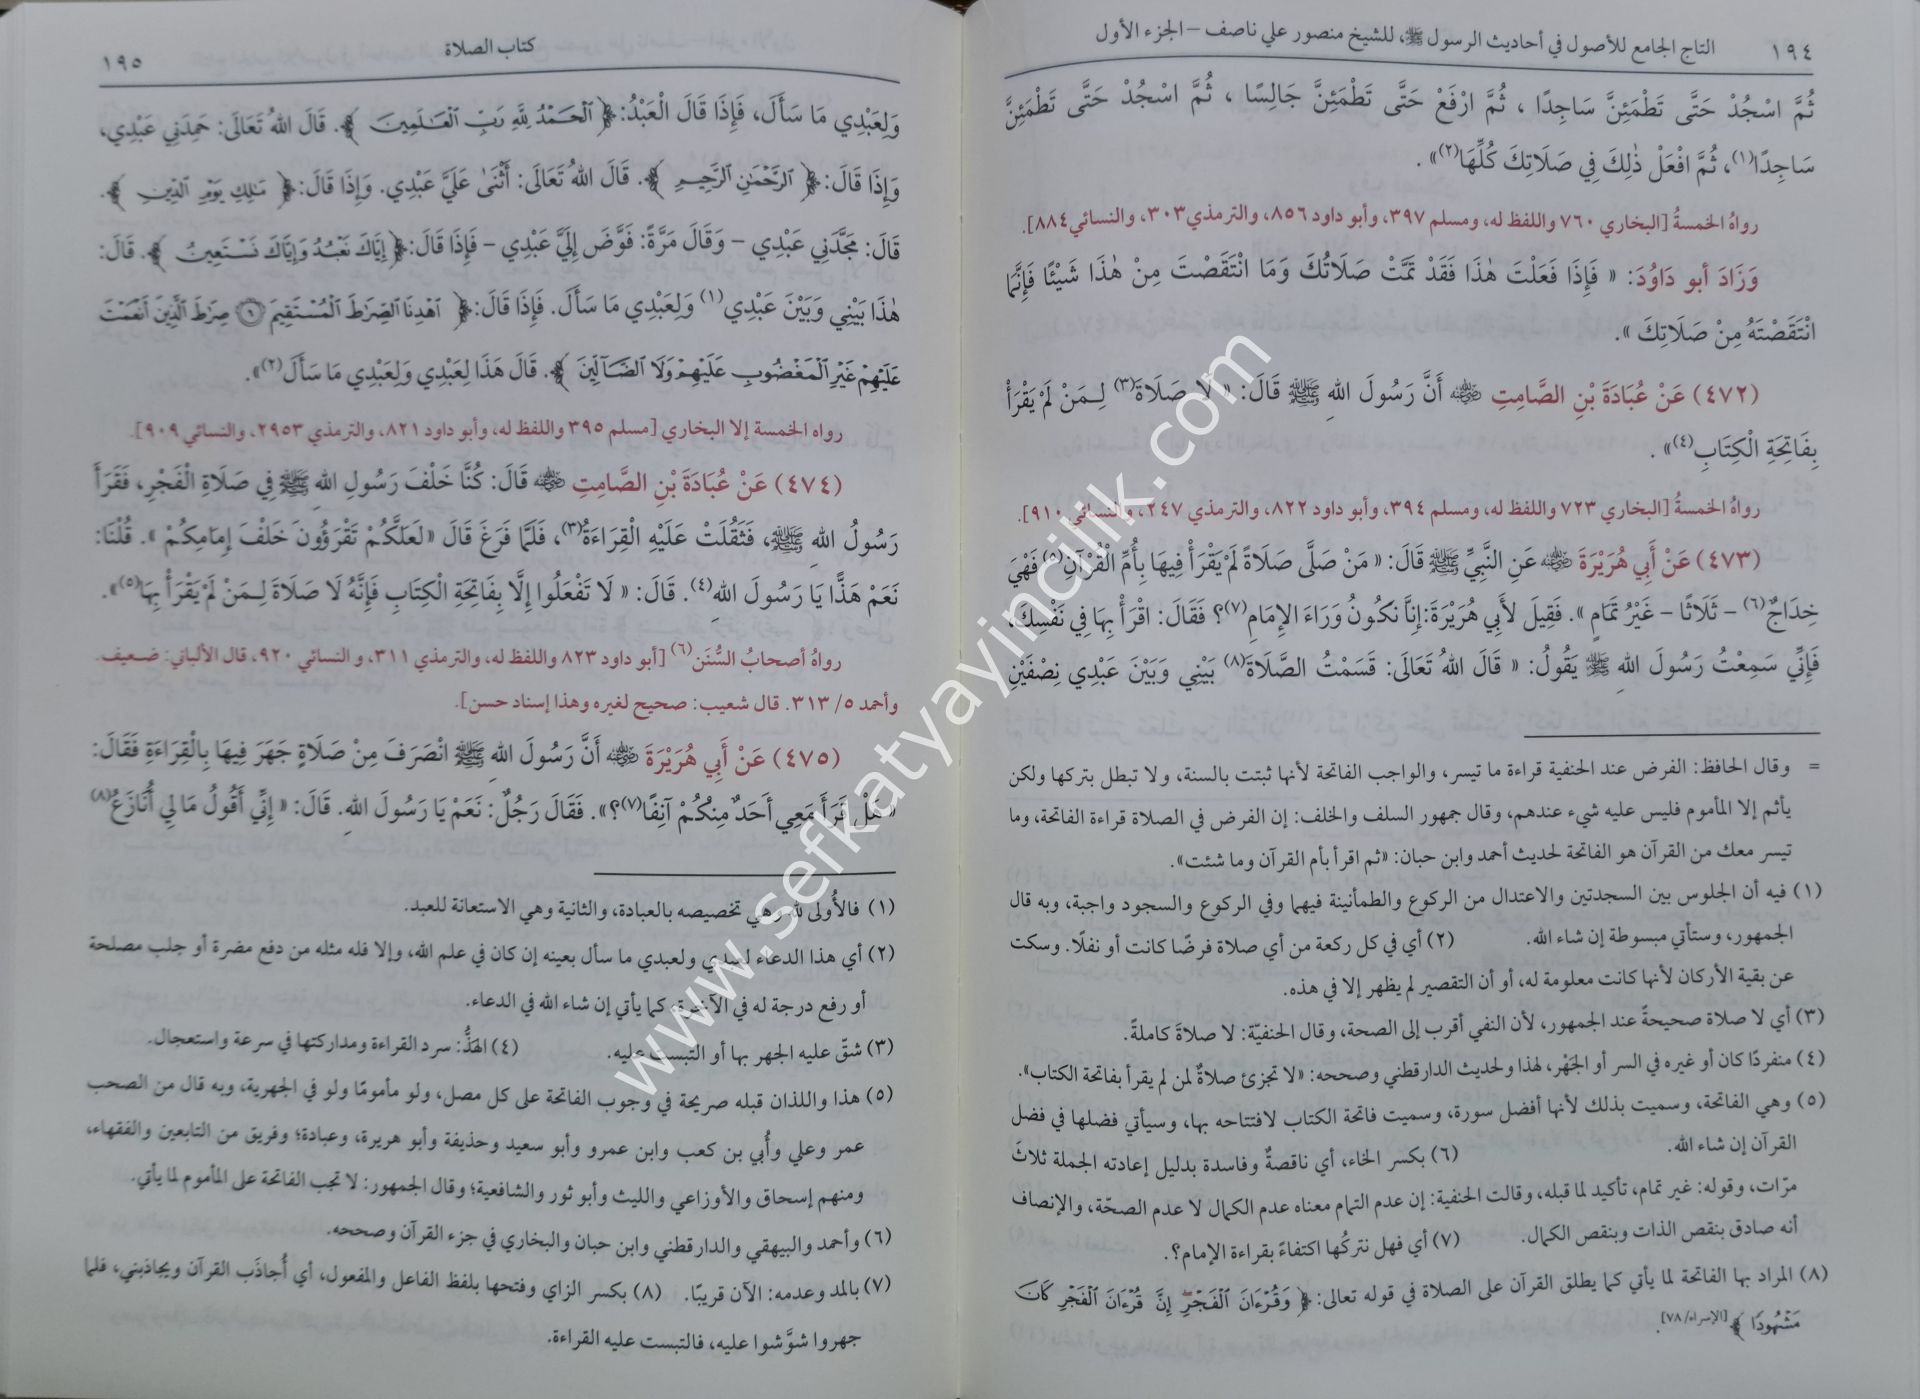 ١٩٤ التاج الجامع للأصول في أحاديث الرسول ﷺ، للشيخ منصور علي ناصف – الجزء الأول
ثُمَّ اسْجُدْ حَتَّى تَطْمَئِنَّ سَاجِدًا ، ثُمَّ ارْفَعْ حَتَّى تَطْمَئِنَّ جَالِسًا ، ثُمَّ اسْجُدْ حَتَّى تَطْمَئِنَّ
سَاجِدًا(١)، ثُمَّ افْعَلْ ذٰلِكَ فِي صَلَاتِكَ كُلِّهَا(٢)» .
رواهُ الخمسةُ [البخاري ٧٦٠ واللفظ له، ومسلم ٣٩٧، وأبو داود ٨٥٦، والترمذي٣٠٣، والنسائي٨٨٤].
وَزَادَ أبو دَاوُدَ: « فَإِذَا فَعَلْتَ هٰذَا فَقَدْ تَمَّتْ صَلَاتُكَ وَمَا انْتَقَصْتَ مِنْ هٰذَا شَيْئًا فَإِنَّمَا
انْتَقَصْتَهُ مِنْ صَلَاتِكَ ».
(٤٧٢) عَنْ عُبَادَةَ بْنِ الصَّامِتِ ﵁ أَنَّ رَسُولَ اللهِ ﷺ قَالَ: « لَا صَلَاةَ(٣) لِـمَنْ لَمْ يَقْرَأْ
بِفَاتِحَةِ الْكِتَابِ(٤)» .
رواهُ الخمسةُ [البخاري ٧٢٣ واللفظ له، ومسلم ٣٩٤، وأبو داود ٨٢٢، والترمذي ٢٤٧، والنسائي ٩١٠].
(٤٧٣) عَنْ أَبِي هُرَيْرَةَ ﵁ عَنِ النَّبِيِّ ﷺ قَالَ: « مَنْ صَلَّى صَلَاةً لَمْ يَقْرَأْ فِيهَا بِأُمِّ الْقُرْآنِ(٥) فَهْيَ
خِدَاجٌ(٦) – ثَلَاثًا – غَيْرُ تَمَامٍ ». فَقِيلَ لأَبِي هُرَيْرَةَ: إِنَّا نَكُونُ وَرَاءَ الإِمَامِ(٧)؟ فَقَالَ: اقْرَأْ بِهَا فِي نَفْسِكَ،
فَإِنِّي سَمِعْتُ رَسُولَ اللهِ ﷺ يَقُولُ: « قَالَ اللهُ تَعَالَى: قَسَمْتُ الصَّلَاةَ(٨) بَيْنِي وَبَيْنَ عَبْدِي نِصْفَيْنِ
= وقال الحافظ: الفرض عند الحنفية قراءة ما تيسر، والواجب الفاتحة لأنها ثبتت بالسنة، ولا تبطل بتركها ولكن
يأثم إلا المأموم فليس عليه شيء عندهم، وقال جمهور السلف والخلف: إن الفرض في الصلاة قراءة الفاتحة، وما
تيسر معك من القرآن هو الفاتحة لحديث أحمد وابن حبان: «ثم اقرأ بأم القرآن وما شئت».
(١) فيه أن الجلوس بين السجدتين والاعتدال من الركوع والطمأنينة فيهما وفي الركوع والسجود واجبة، وبه قال
الجمهور، وستأتي مبسوطة إن شاء الله. (٢) أي في كل ركعة من أي صلاة فرضًا كانت أو نفلًا. وسكت
عن بقية الأركان لأنها كانت معلومة له، أو أن التقصير لم يظهر إلا في هذه.
(٣) أي لا صلاة صحيحةً عند الجمهور، لأن النفي أقرب إلى الصحة، وقال الحنفيّة: لا صلاةَ كاملةً.
(٤) منفردًا كان أو غيره في السر أو الجَهْر، لهذا ولحديث الدارقطني وصححه: «لا تجزئ صلاةٌ لمن لم يقرأ بفاتحة الكتاب».
(٥) وهي الفاتحة، وسميت بذلك لأنها أفضل سورة، وسميت فاتحة الكتاب لافتتاحه بها، وسيأتي فضلها في فضل
القرآن إن شاء الله. (٦) بكسر الخاء، أي ناقصةٌ وفاسدة بدليل إعادته الجملة ثلاثَ
مرّات، وقوله: غير تمام، تأكيد لما قبله، وقالت الحنفية: إن عدم التمام معناه عدم الكمال لا عدم الصحّة، والإنصاف
أنه صادق بنقص الذات وبنقص الكمال. (٧) أي فهل نتركُها اكتفاءً بقراءة الإمام؟.
(٨) المراد بها الفاتحة لما يأتي كما يطلق القرآن على الصلاة في قوله تعالى: ﴿ وَقُرْءَانَ ٱلْفَجْرِ إِنَّ قُرْءَانَ ٱلْفَجْرِ كَانَ
مَشْهُودًا ﴾ [الإسراء/ ٧٨].
كتاب الصلاة ١٩٥
وَلِعَبْدِي مَا سَأَلَ، فَإِذَا قَالَ الْعَبْدُ: ﴿ ٱلْحَمْدُ لِلَّهِ رَبِّ ٱلْعَـٰلَمِينَ ﴾. قَالَ اللهُ تَعَالَى: حَمِدَنِي عَبْدِي،
وَإِذَا قَالَ: ﴿ ٱلرَّحْمَـٰنِ ٱلرَّحِيمِ ﴾. قَالَ اللهُ تَعَالَى: أَثْنَى عَلَيَّ عَبْدِي. وَإِذَا قَالَ: ﴿ مَـٰلِكِ يَوْمِ ٱلدِّينِ ﴾.
قَالَ: مَجَّدَنِي عَبْدِي – وَقَالَ مَرَّةً: فَوَّضَ إِلَيَّ عَبْدِي – فَإِذَا قَالَ: ﴿ إِيَّاكَ نَعْبُدُ وَإِيَّاكَ نَسْتَعِينُ ﴾. قَالَ:
هٰذَا بَيْنِي وَبَيْنَ عَبْدِي(١) وَلِعَبْدِي مَا سَأَلَ. فَإِذَا قَالَ: ﴿ ٱهْدِنَا ٱلصِّرَٰطَ ٱلْمُسْتَقِيمَ ۝٦ صِرَٰطَ ٱلَّذِينَ أَنْعَمْتَ
عَلَيْهِمْ غَيْرِ ٱلْمَغْضُوبِ عَلَيْهِمْ وَلَا ٱلضَّآلِّينَ ﴾. قَالَ هَذَا لِعَبْدِي وَلِعَبْدِي مَا سَأَلَ(٢)».
رواه الخمسة إلا البخاري [مسلم ٣٩٥ واللفظ له، وأبو داود ٨٢١، والترمذي ٢٩٥٣، والنسائي ٩٠٩].
(٤٧٤) عَنْ عُبَادَةَ بْنِ الصَّامِتِ ﵁ قَالَ: كُنَّا خَلْفَ رَسُولِ اللهِ ﷺ فِي صَلَاةِ الْفَجْرِ، فَقَرَأَ
رَسُولُ اللهِ ﷺ، فَثَقُلَتْ عَلَيْهِ الْقِرَاءَةُ(٣)، فَلَمَّا فَرَغَ قَالَ «لَعَلَّكُمْ تَقْرَؤُونَ خَلْفَ إِمَامِكُمْ ». قُلْنَا:
نَعَمْ هَذًّا يَا رَسُولَ اللهِ(٤). قَالَ: « لَا تَفْعَلُوا إِلَّا بِفَاتِحَةِ الْكِتَابِ فَإِنَّهُ لَا صَلَاةَ لِـمَنْ لَمْ يَقْرَأْ بِهَا(٥)».
رواهُ أصحابُ السُّنَن(٦) [أبو داود ٨٢٣ واللفظ له، والترمذي ٣١١، و النسائي ٩٢٠، قال الألباني: ضعيف.
وأحمد ٥/ ٣١٣. قال شعيب: صحيح لغيره وهذا إسناد حسن].
(٤٧٥) عَنْ أَبِي هُرَيْرَةَ ﵁ أَنَّ رَسُولَ اللهِ ﷺ انْصَرَفَ مِنْ صَلَاةٍ جَهَرَ فِيهَا بِالْقِرَاءَةِ فَقَالَ:
« هَلْ قَرَأَ مَعِي أَحَدٌ مِنْكُمْ آنِفًا(٧)؟». فَقَالَ رَجُلٌ: نَعَمْ يَا رَسُولَ اللهِ. قَالَ: « إِنِّي أَقُولُ مَا لِي أُنَازَعُ(٨)
(١) فالأُولى لله وهي تخصيصه بالعبادة، والثانية وهي الاستعانة للعبد.
(٢) أي هذا الدعاء لعبدي ولعبدي ما سأل بعينه إن كان في علم الله، وإلا فله مثله من دفع مضرة أو جلب مصلحة
أو رفع درجة له في الآخرة، كما يأتي إن شاء الله في الدعاء.
(٣) شقّ عليه الجهر بها أو التبست عليه. (٤) الهَذُّ: سرد القراءة ومداركتها في سرعة واستعجال.
(٥) هذا واللذان قبله صريحة في وجوب الفاتحة على كل مصل، ولو مأمومًا ولو في الجهرية، وبه قال من الصحب
عمر وعلي وأُبي بن كعب وابن عمرو وأبو سعيد وحذيفة وأبو هريرة، وعبادة؛ وفريق من التابعين والفقهاء،
ومنهم إسحاق والأوزاعي والليث وأبو ثور والشافعية؛ وقال الجمهور: لا تجب الفاتحة على المأموم لما يأتي.
(٦) وأحمد والبيهقي والدارقطني وابن حبان والبخاري في جزء القرآن وصححه.
(٧) بالمد وعدمه: الآن قريبًا. (٨) بكسر الزاي وفتحها بلفظ الفاعل والمفعول، أي أُجاذَب القرآن ويجاذبني، فلما
جهروا شوَّشوا عليه، فالتبست عليه القراءة.
www.sefkatyayincilik.com